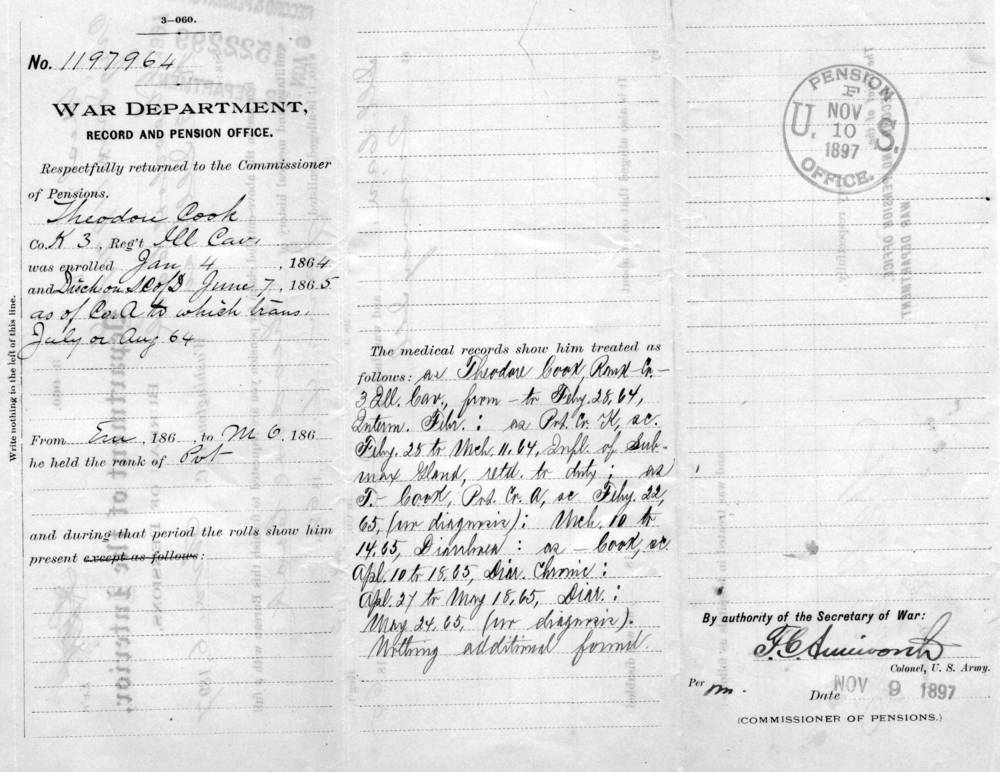 3—060.
No. 1197964
WAR DEPARTMENT,
RECORD AND PENSION OFFICE.
Respectfully returned to the Commissioner
of Pensions.
Theodore Cook
Co. K 3, Reg't Ill Cav.
was enrolled Jan 4, 1864
and Disch on SCofD June 7, 1865
as of Co. A to which trans.
July or Aug 64
From Enr, 186 , to M O, 186
he held the rank of Pvt
and during that period the rolls show him
present except as follows:
Write nothing to the left of this line.
The medical records show him treated as
follows: as Theodore Cook, Co.
3 Ill. Cav., from – to Feby. 28, 64,
Interm. Febr. : as Pvt. Co. K, sc.
Feby. 28 to Mch. 11, 64, Infl. of Sub-
max Gland, retd. to duty; as
T. Cook, Pvt. Co. A, sc Feby. 22,
65, (no diagnosis); Mch. 10 to
14, 65, Diarrhoea : as – Cook, sc.
Apl. 10 to 18, 65, Diar. Chronic :
Apl. 27 to May 18, 65, Diar. :
May 24, 65, (no diagnosis).
Nothing additional found.
U. S. PENSION OFFICE.
F
NOV
10
1897
By authority of the Secretary of War:
F. C. Ainsworth
Colonel, U. S. Army.
Per
Date NOV 9 1897
(COMMISSIONER OF PENSIONS.)